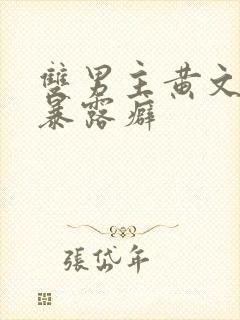 雙男主黄文
暴露癖
張岱年